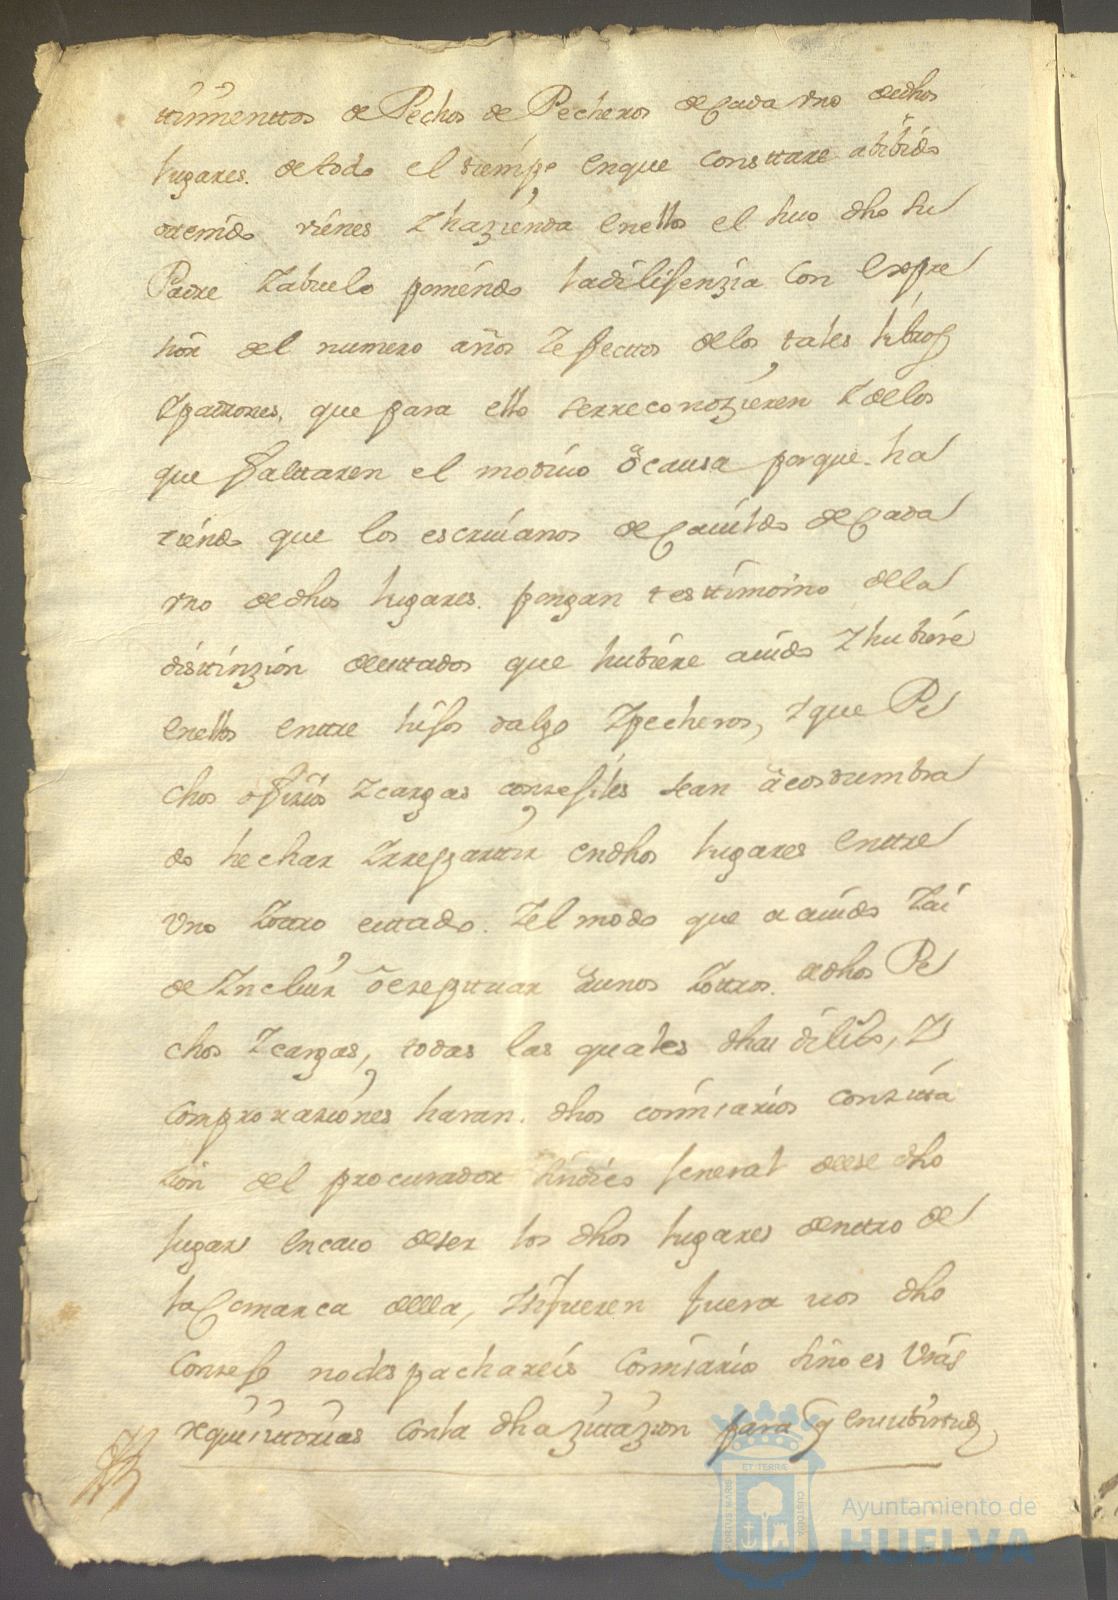 timienttos de Pechos de Pecheros de Cada vno de dhos
lugares. de todo el tiempo enque Consttare a bibido
tenido vienes Y hazienda enellos el suso dho su
Padre Y abuelo poniendo la dilisenzia Con Expre
sion del numero años Y efecttos delos tales libros
Y padrones, que para ello se rreconozieren Y delos
que faltaren el motivo o causa porque. ha
ziendo que los escriuanos de Cauildo de Cada
vno de dhos lugares. pongan testtimonio de la
disttinzion de esttados que hubiere auido Y hubiere
enellos enttre hijos dalgo Y pecheros, Y que Pe
chos ofizios Y cargas consejiles sean acostumbra
do hechar Y rreparttir endhos lugares enttre
Vno Y ottro esttado. Y el modo que a auido Y ai
de Yncluir o eseptuar a unos Y ottros. de dhos Pe
chos Y cargas, todas las quales dhas dilixs, Y
comprovaziones haran. dhos comisarios con zitta
zion del procurador sindico jeneral de ese dho
lugar en caso de ser los dhos lugares denttro de
la Comarca della, Y si fueren fuera vos dho
Consejo no despachareis Comisario sino es Vras
requisittorias con la dha zittazion para q en su birtud
ET TERRÆ
PORTUS MARIS
CUSTODIA
Ayuntamiento de
HUELVA